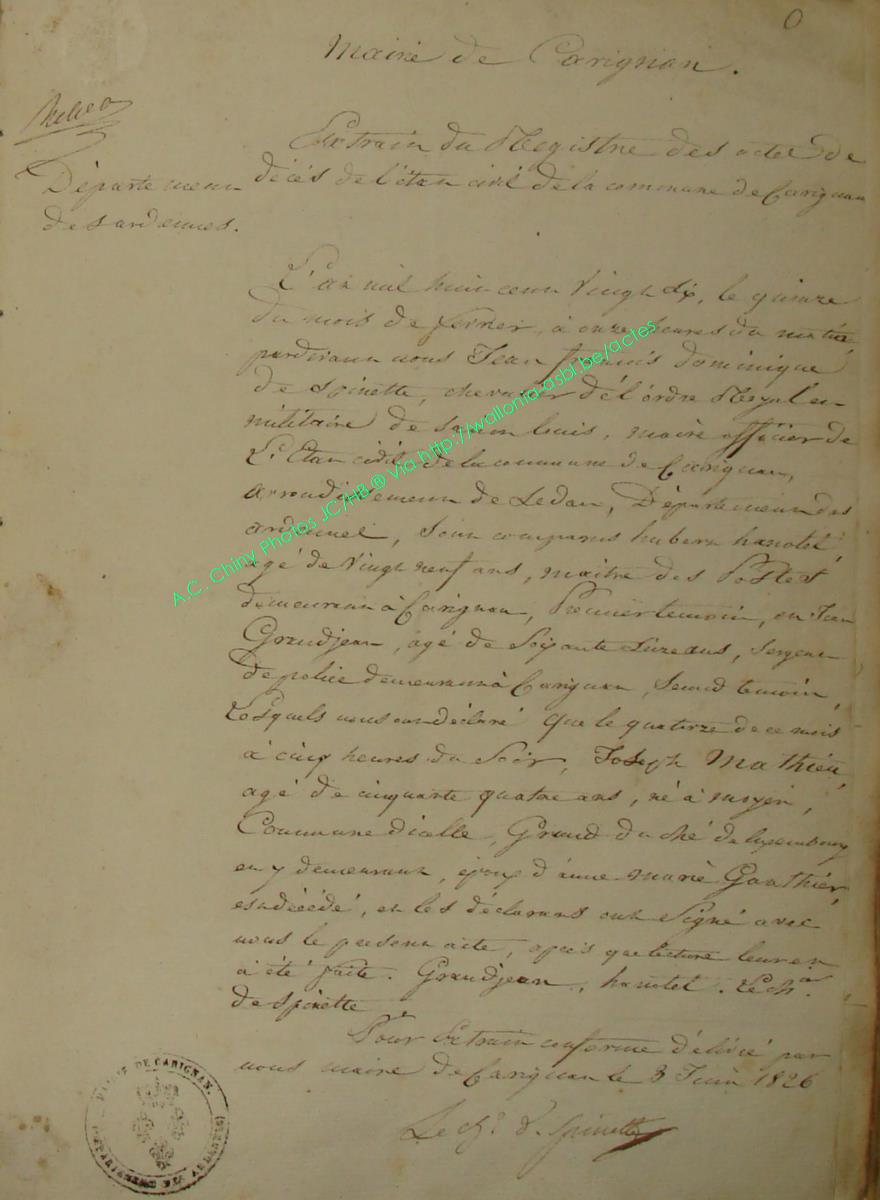 0
Mairie de Carignan.
Extrait du Registre des actes de
décès de l'état civil de la commune de Carignan
Département
des ardennes.
L'an mil huit cent vingt six, le quinze
du mois de fevrier, à onze heures du matin
pardevant nous Jean françois dominique
de Spinette, chevalier de l'ordre Royal et
militaire de saint louis, maire officier de
L'Etat civil de la commune de Carignan,
arrondissement de Sedan, Département des
ardennes, sont comparus hubert hanotel
agé de vingt neuf ans, maitre des Postes
demeurant à Carignan, Premier temoin, et Jean
Grandjean, agé de Soixante ans, Sergent
de police demeurant à Carignan, second temoin,
Lesquels nous ont déclaré que le quatorze de ce mois
à cinq heures du Soir, Joseph Mathieu,
agé de cinquante quatre ans, né à moyen,
Commune d'icelle, Grand duché de luxembourg
et y demeurant, époux d'anne marie Gauthier,
est décédé, et les déclarans ont Signé avec
nous le present acte, après que lecture leur en
a été faite. Grandjean, hanotel. Le chr.
de Spinette
Pour Extrait conforme délivré par
nous maire de Carignan le 3 Juin 1826
Le chr. d. Spinette
MAIRIE DE CARIGNAN.
(DÉPARTEMENT DES ARDENNES)
A.C. Chiny Photos JC/HB ® Via http://wallonia-asbl.be/actes